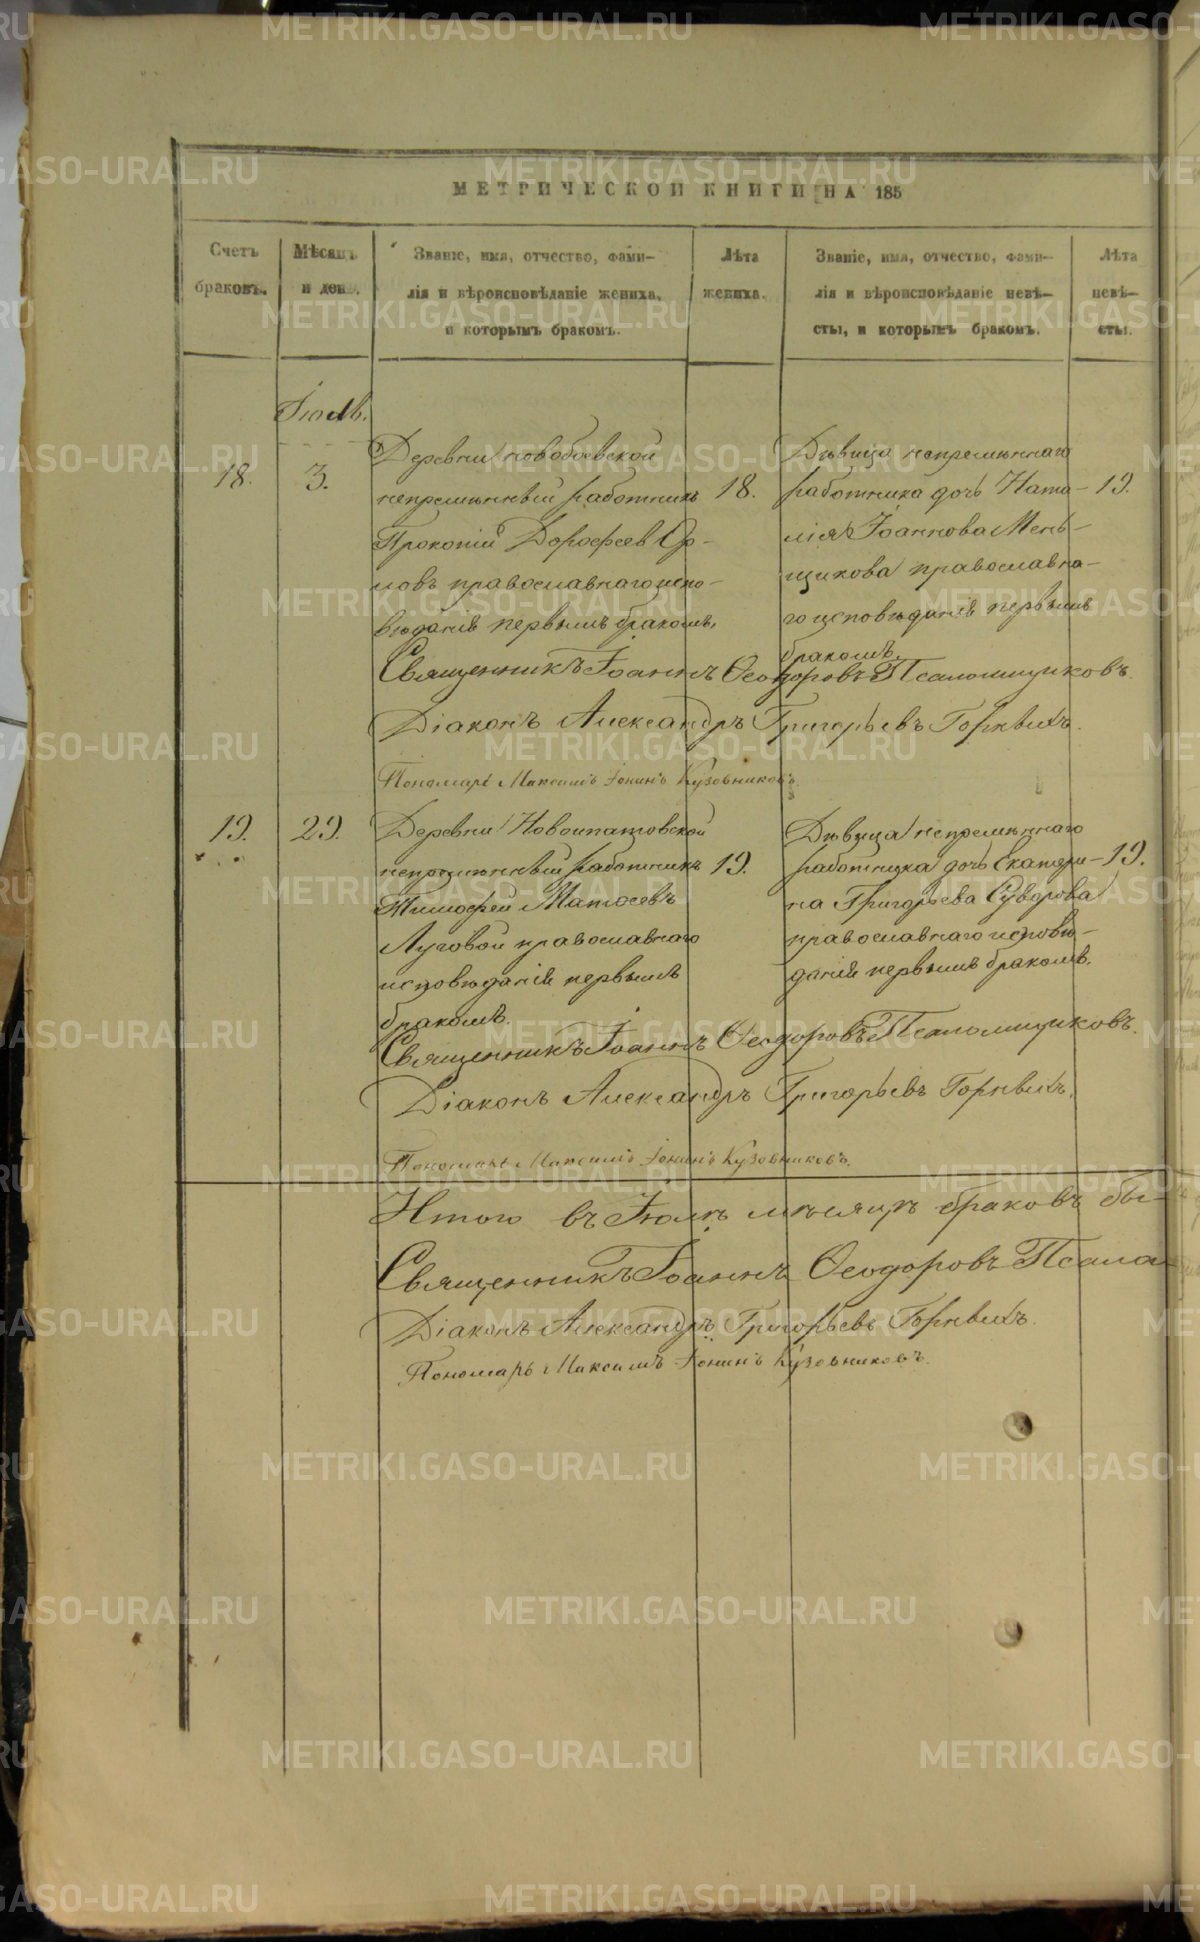 МЕТРИЧЕСКОЙ КНИГИ НА 185
Счетъ браковъ.
Мѣсяцъ и день.
Званіе, имя, отчество, фами-
лія и вѣроисповѣданіе жениха,
и которымъ бракомъ.
Лѣта жениха.
Званіе, имя, отчество, фами-
лія и вѣроисповѣданіе невѣ-
сты, и которымъ бракомъ.
Лѣта невѣ-
сты.
Іюль.
18.
3.
Деревни Новобоевской
непремѣнный работникъ
Прокопій Дорофеев Ор-
ловъ православнаго испо-
вѣданія первымъ бракомъ,
18.
Дѣвица непремѣннаго
работника дочь Ната-
лія Іоаннова Мень-
щикова православна-
го исповѣданія первымъ
бракомъ.
19.
Священникъ Іоаннъ Ѳеодоровъ Псаломщиковъ.
Діаконъ Александръ Григорьевъ Горныхъ.
Пономарь Максимъ Іонинъ Кузовниковъ.
19.
29.
Деревни Новоипатовской
непремѣнный работникъ
Тимофей Матѳеевъ
Луговой православнаго
исповѣданія первымъ
бракомъ.
19.
Дѣвица непремѣннаго
работника дочь Екатери-
на Григорьева Суворова
православнаго исповѣ-
данія первымъ бракомъ.
19.
Священникъ Іоаннъ Ѳеодоровъ Псаломщиковъ.
Діаконъ Александръ Григорьевъ Горныхъ.
Пономарь Максимъ Іонинъ Кузовниковъ.
Итого въ Іюлѣ мѣсяцѣ браковъ бы-
Священникъ Іоаннъ Ѳеодоровъ Псало-
Діаконъ Александръ Григорьевъ Горныхъ.
Пономарь Максимъ Іонинъ Кузовниковъ.
METRIKI.GASO-URAL.RU